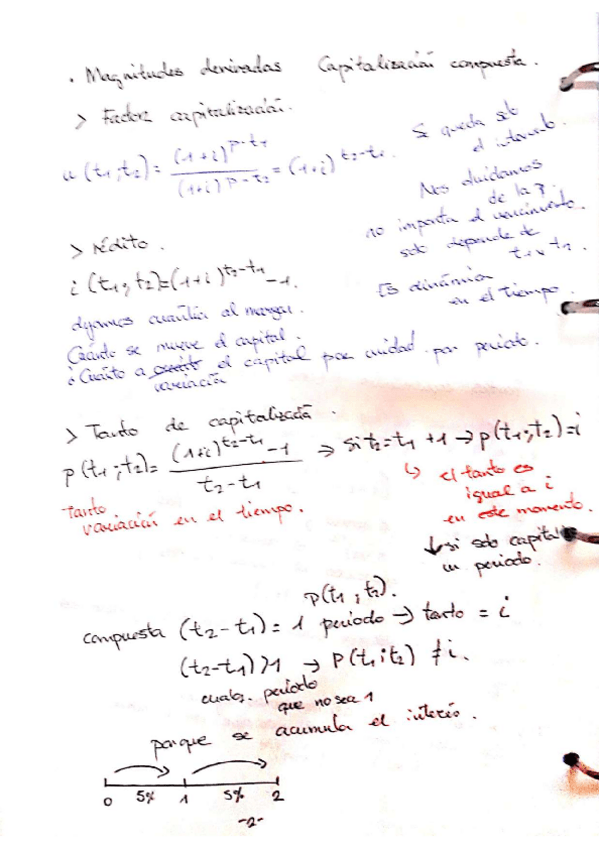 · Magnitudes derivadas Capitalización compuesta.
> Factor capitalización.
u (t₁;t₂) = (1+i)^(p-t₁) / (1+i)^(p-t₂) = (1+i)^(t₂-t₁).
Se queda solo
el intervalo.
Nos olvidamos
de la p.
no importa el vencimiento.
solo depende de
t₁ y t₂.
Es dinámica
en el tiempo.
> rédito.
i (t₁;t₂) = (1+i)^(t₂-t₁) -1.
dejamos cuantía al margen.
Cuánto se mueve el capital.
¿Cuánto a variación el capital por unidad por periodo.
> Tanto de capitalizació.
p(t₁;t₂) = (1+i)^(t₂-t₁) -1 / t₂-t₁ → si t₂=t₁+1 → p(t₁;t₂)=i
↳ el tanto es
igual a i
en este momento.
Tanto.
variación en el tiempo.
↓ si solo capital
un periodo.
p(t₁,t₂).
compuesta (t₂-t₁) = 1 periodo → tanto = i
(t₂-t₁)>1 → p(t₁;t₂) ≠ i.
cualq. periodo
que no sea 1
porque se acumula el interés.
0 5% 1 5% 2
-2-